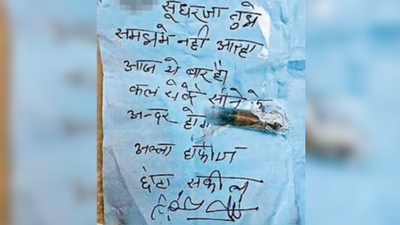 सुधरजा तुझे
समझमे नही आरहा
आज ये बाहर है
कल तेरे सीने के
अन्दर होगा
अल्ला हाफीज
छोटा सकील